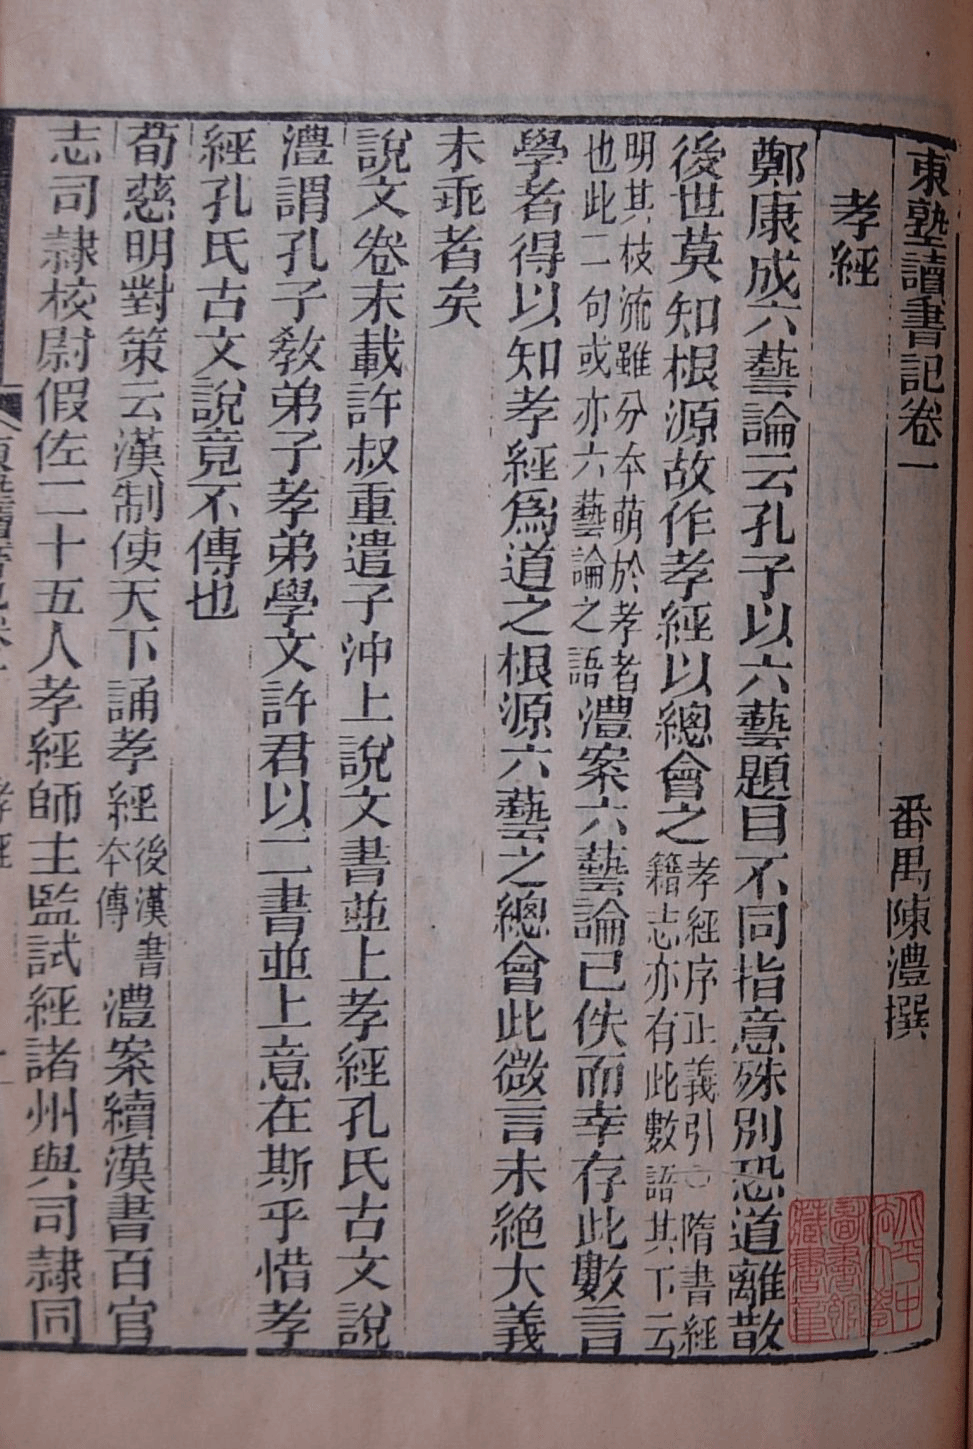 東塾讀書記卷一
番禺陳澧撰
孝經
鄭康成六藝論云孔子以六藝題目不同指意殊別恐道離散
後世莫知根源故作孝經以總會之
孝經序正義引 隋書經
籍志亦有此數語其下云
明其枝流雖分本萌於孝者
也此二句或亦六藝論之語
澧案六藝論已佚而幸存此數言
學者得以知孝經爲道之根源六藝之總會此微言未絶大義
未乖者矣
說文卷末載許叔重遣子沖上說文書並上孝經孔氏古文說
澧謂孔子敎弟子孝弟學文許君以二書並上意在斯乎惜孝
經孔氏古文說竟不傳也
荀慈明對策云漢制使天下誦孝經
後漢書
本傳
澧案續漢書百官
志司隷校尉假佐二十五人孝經師主監試經諸州與司隷同
孝經